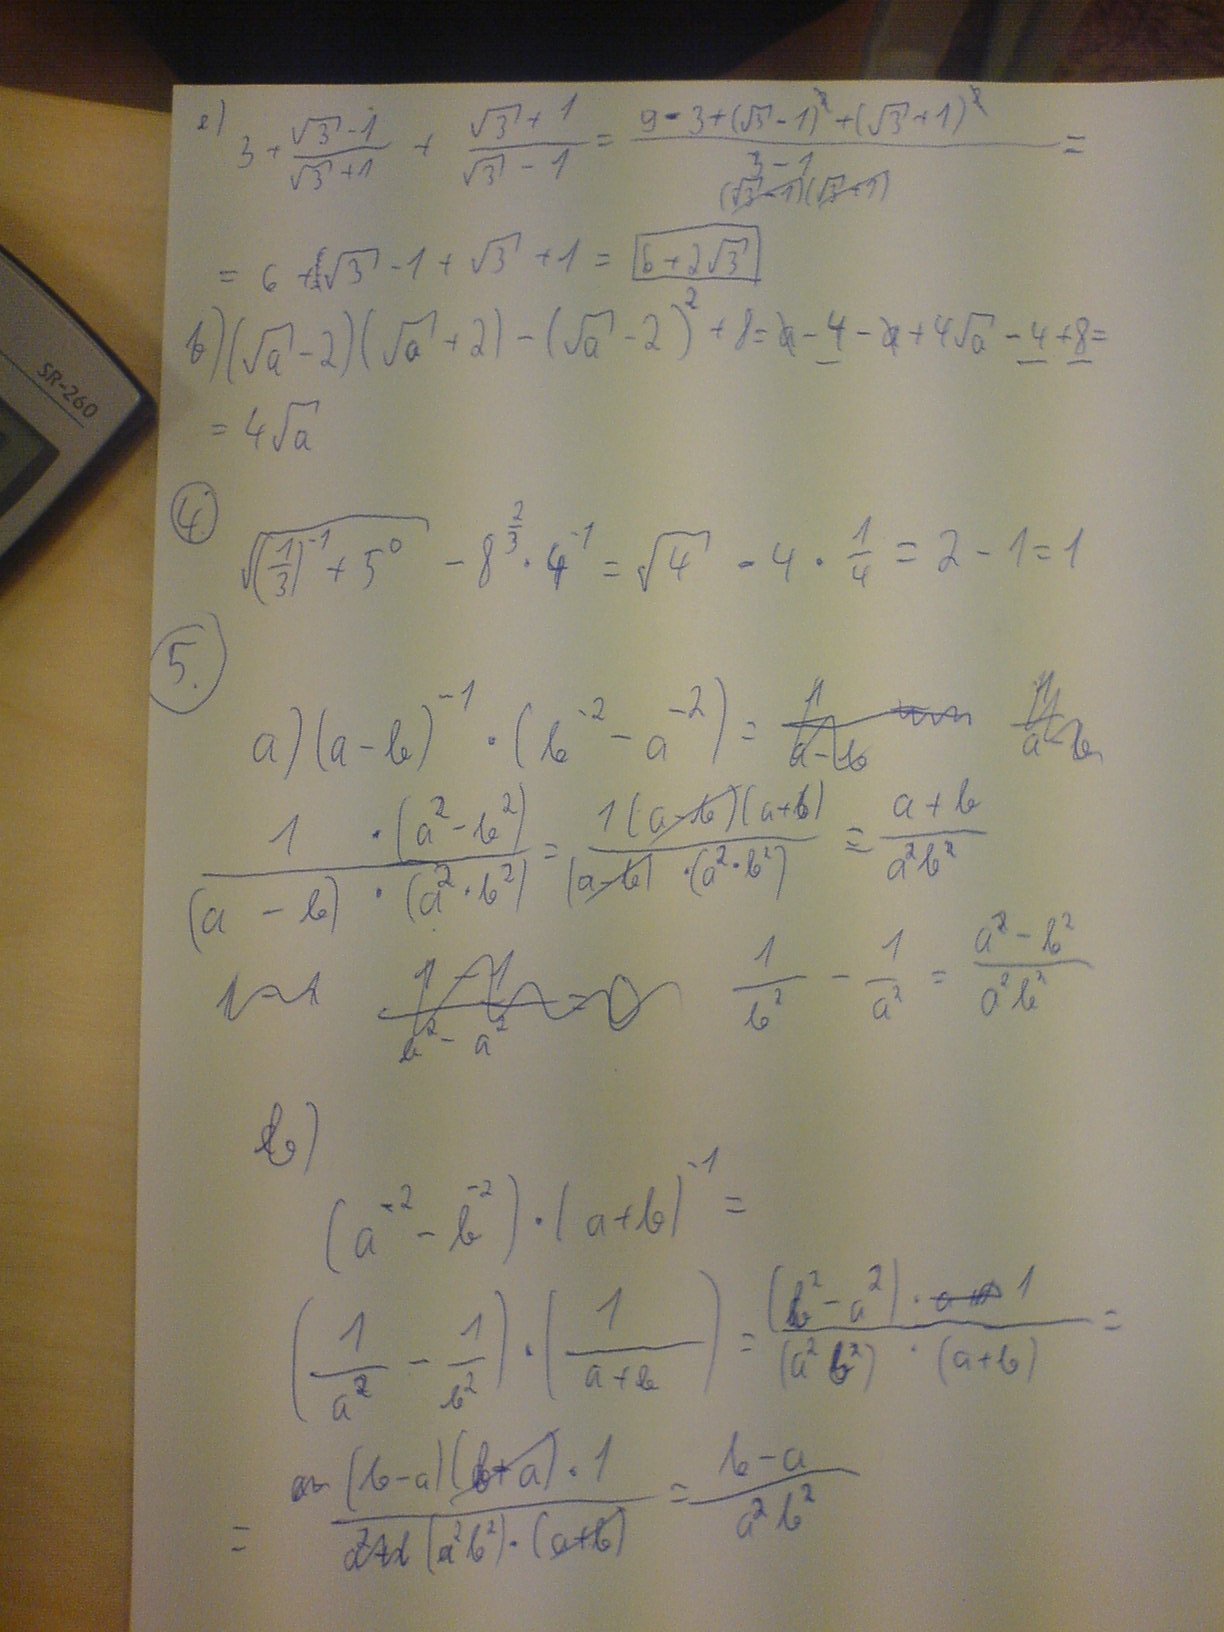 e) 3 + (√3 - 1)/(√3 + 1) + (√3 + 1)/(√3 - 1) = (9 - 3 + (√3 - 1)² + (√3 + 1)²)/((√3 - 1)(√3 + 1)) 3 - 1 =
= 6 + √3 - 1 + √3 + 1 = 6 + 2√3
b) (√a - 2)(√a + 2) - (√a - 2)² + 8 = a - 4 - a + 4√a - 4 + 8 =
= 4√a
SR-260
4.
√((1/3)⁻¹ + 5⁰) - 8^(2/3) · 4⁻¹ = √4 - 4 · 1/4 = 2 - 1 = 1
5.
a) (a - b)⁻¹ · (b⁻² - a⁻²) =
(1 · (a² - b²))/((a - b) · (a² · b²)) = (1(a - b)(a + b))/((a - b) · (a² · b²)) = (a + b)/(a²b²)
1/b² - 1/a² = (a² - b²)/(a²b²)
b)
(a⁻² - b⁻²) · (a + b)⁻¹ =
(1/a² - 1/b²) · (1/(a + b)) = ((b² - a²) · 1)/((a² b²) · (a + b)) =
= ((b - a)(b + a) · 1)/((a² b²) · (a + b)) = (b - a)/(a² b²)